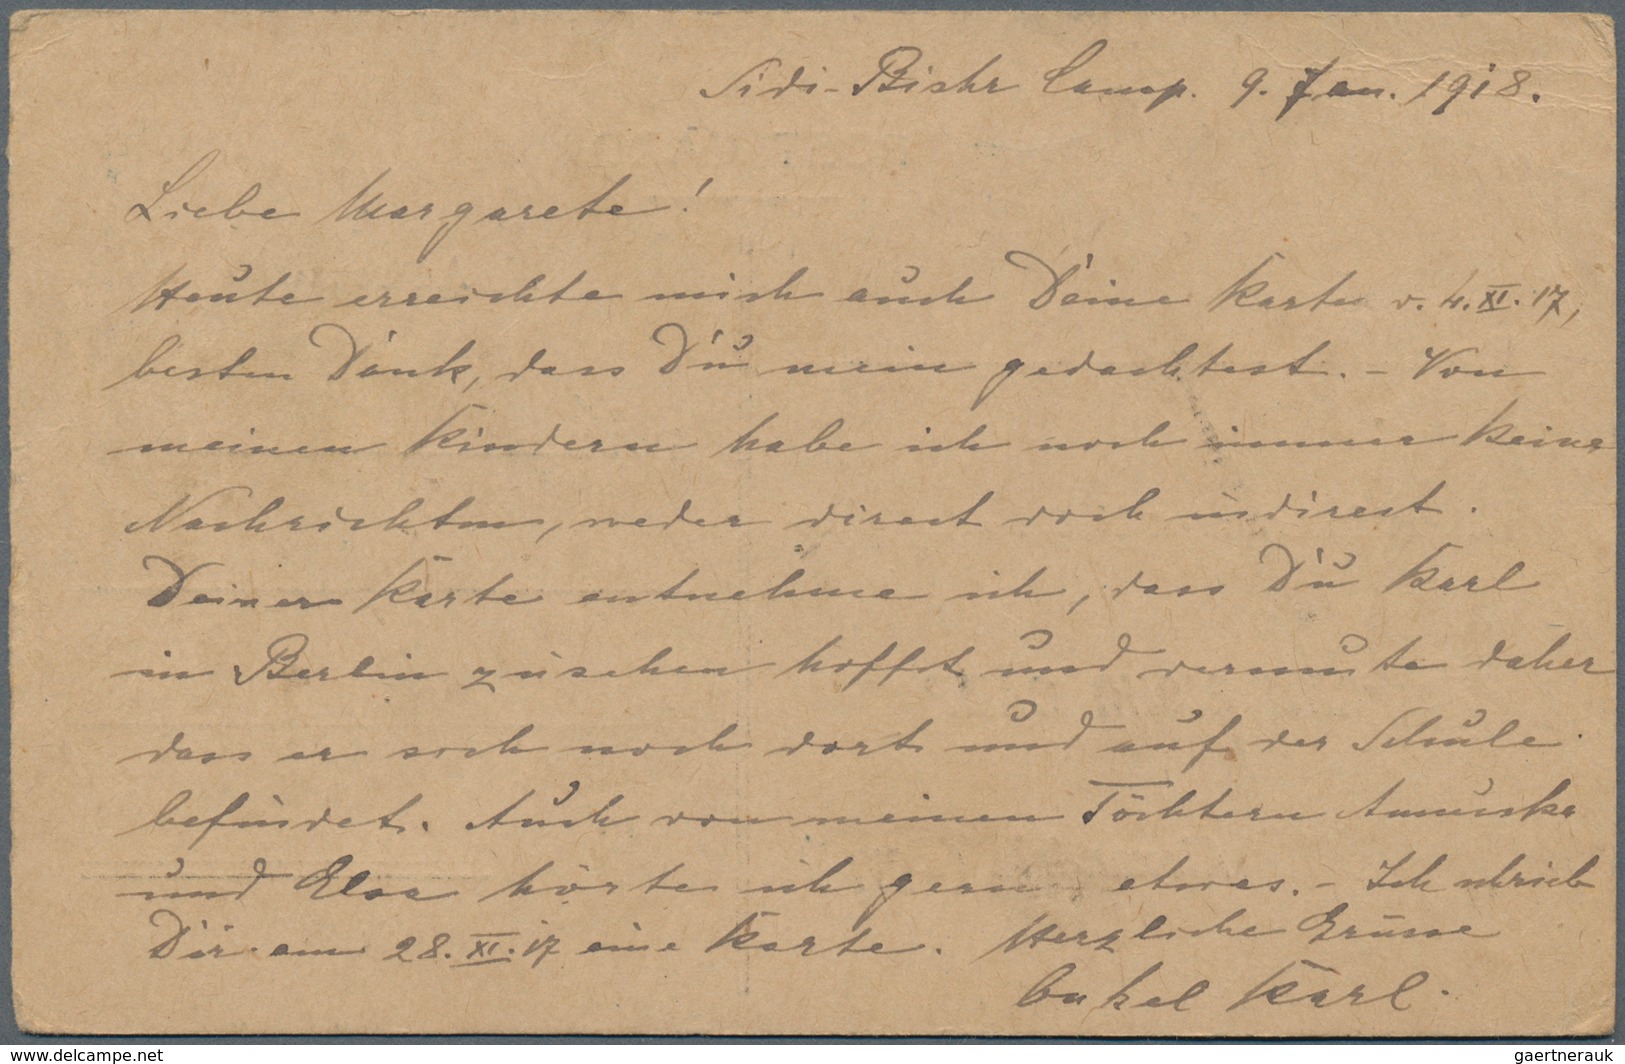 Sidi-Bishr Camp. 9. Jan. 1918.
Liebe Margarete!
Heute erreichte mich auch Deine Karte v. 4. XI. 17,
besten Dank, dass Du mein gedachtest. – Von
meinen Kindern habe ich noch immer keine
Nachrichten, weder direct noch indirect.
Deiner Karte entnehme ich, dass Du Karl
in Berlin zu sehen hoffst und vermute daher
dass er sich noch dort und auf der Schule
befindet. Auch von meinen Töchtern Annuska
und Elsa hörte ich gern etwas. – Ich schrieb
Dir am 28. XI. 17 eine Karte. Herzliche Grüsse
Onkel Karl.
www.delcampe.net
gaertnerauk